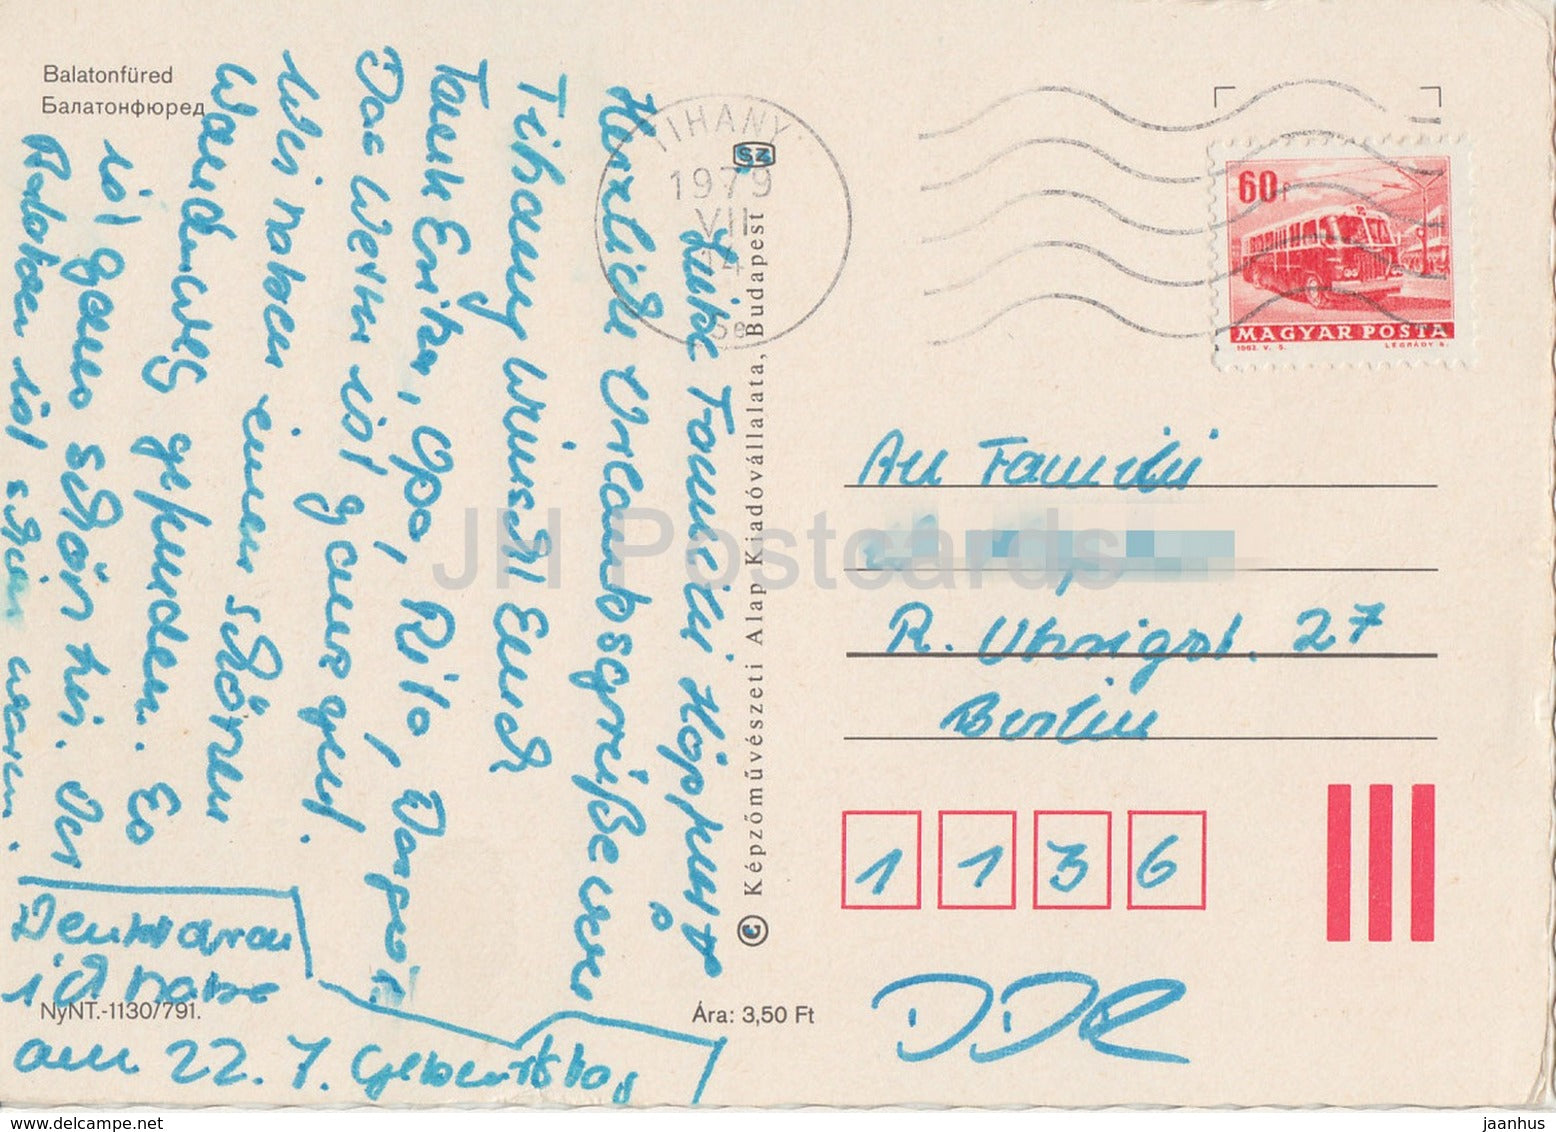 Balatonfüred
Балатонфюред
Liebe Familie Höppner
Herzliche Urlaubsgrüße aus
Tihany wünscht Euch
Tante Erika, Opa, Rita,
Das Wetter ist ganz gut.
Wir haben einen schönen
Wanderweg gefunden. Es
ist ganz schön hier. Der
Balaton ist schön warm.
Denkt daran
ich habe
am 22. 7. Geburtstag
NyNT.-1130/791.
Ára: 3,50 Ft
© Képzőművészeti Alap Kiadóvállalata, Budapest
TIHANY
1979
VII
14
60f
MAGYAR POSTA
1963. V. S.
LÉGRÁDY S.
An Familie
R. Uhrigst. 27
Berlin
1 1 3 6
DDR
JH Postcards
delcampe.net
jaanhus